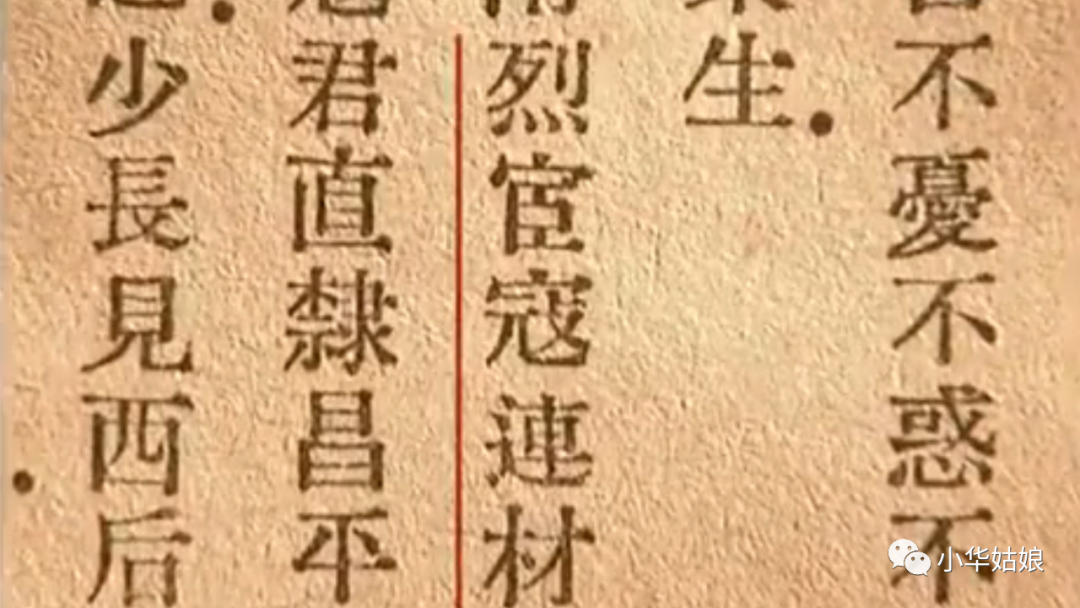 不憂不惑不
生．
烈宦寇連材
君直隸昌平
少長見西后
小华姑娘